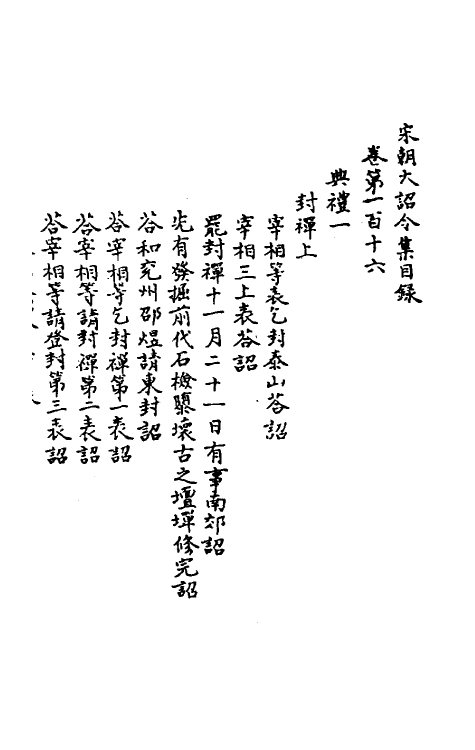 宋朝大詔令集目録
卷第一百十六
典禮一
封禪上
宰相等表乞封泰山荅詔
宰相三上表荅詔
罷封禪十一月二十一日有事南郊詔
先有發掘前代石檢隳壞古之壇墠修完詔
荅和兖州邵煜請東封詔
荅宰相等乞封禪第一表詔
荅宰相等請封禪第二表詔
荅宰相等請登封第三表詔